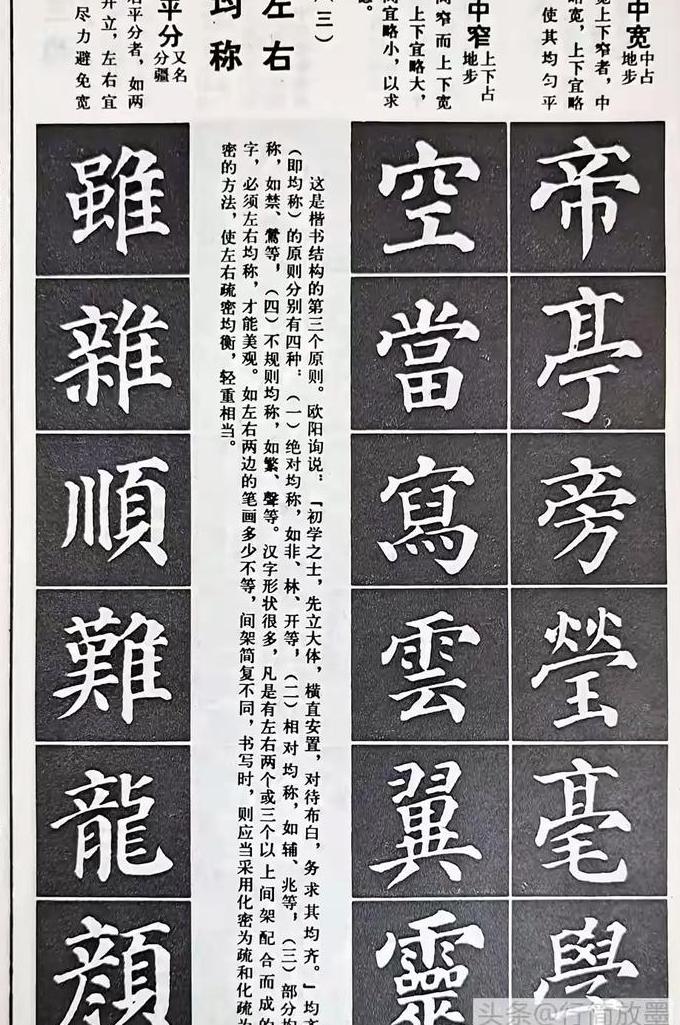 中宽
中占
地步
宽上下窄者，中
略宽，上下宜略
使其均匀平
帝
亭
旁
瑩
毫
學
中窄
上下占
地步
窄而上下宽
上下宜略大，
宜略小，以求
空
當
寫
雲
翼
靈
（三）
左右
均称
这是楷书结构的第三个原则。欧阳询说：「初学之士，先立大体，横直安置，对待布白，务求其均齐。」均齐
（即均称）的原则分别有四种：（一）绝对均称，如非、林、开等，（二）相对均称，如辅、兆等，（三）部分均
称，如禁、鶯等，（四）不规则均称，如繁、聲等。汉字形状很多，凡是有左右两个或三个以上间架配合而成的
字，必须左右均称，才能美观。如左右两边的笔画多少不等，间架简复不同，书写时，则应当采用化密为疏和化疏为
密的方法，使左右疏密均衡，轻重相当。
平分
又名
分疆
平分者，如两
并立，左右宜
尽力避免宽
雖
雜
順
難
龍
顏
头条@行简放墨